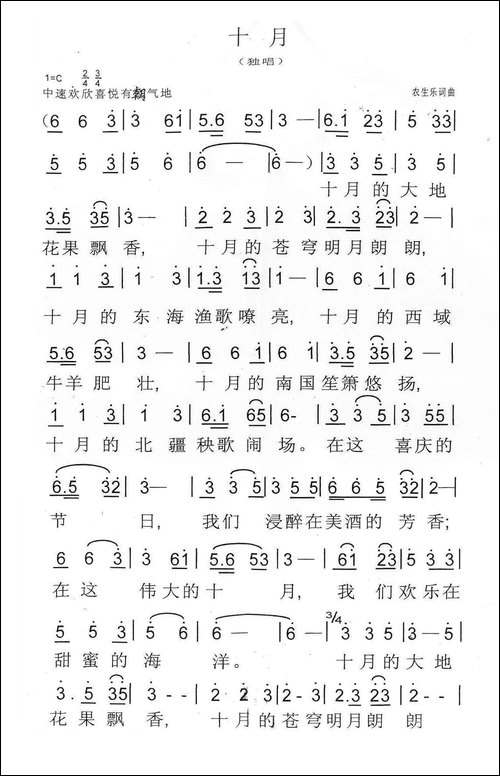 十 月
（独唱）
1=C 2/4 3/4
中速欢欣喜悦有朝气地 农生乐词曲
（6 6 3 | 3 61 | 5.6 53 | 3 — | 6.1 23 | 5 33 |
5 5 3 | 5 5 | 6 — | 6 —）| 3 3 5 | 3 5 |
十月的大地
3.5 35 | 3 — | 2 2 3 | 2 2 | 2.3 23 | 2 — |
花果飘香， 十月的苍穹明月朗朗，
1 1 3 | 1 1 | 1.3 13 | 1 — | 1 1 6 | 1 3 |
十月的东海渔歌嘹亮，十月的西域
5.6 53 | 3 — | 6 6 1 | 6 1 | 3.5 35 | 3 — |
牛羊肥壮，十月的南国笙箫悠扬，
1 1 3 | 1 1 | 6.1 65 | 6- | 3 3 5 | 3 55 |
十月的北疆秧歌闹场。在这 喜庆的
6.5 32 | 3 — | 3 3 5 | 3 5 | 6 6 5 | 3.5 32 | 2 — |
节 日， 我们 浸醉在美酒的芳香；
6 6 3 | 3 61 | 5.6 53 | 3 — | 61 23 | 5 33 |
在这 伟大的十 月， 我 们欢乐在
5 5 3 | 5 5 | 6 — | 6 — | 3/4 3 3 5 | 3 - 5 |
甜蜜的海 洋。 十月的大地
3 . 5 35 | 3 - - | 2 2 3 | 2 - 2 | 2.3 23 | 2 - - |
花果飘 香，十月的苍穹明月朗 朗